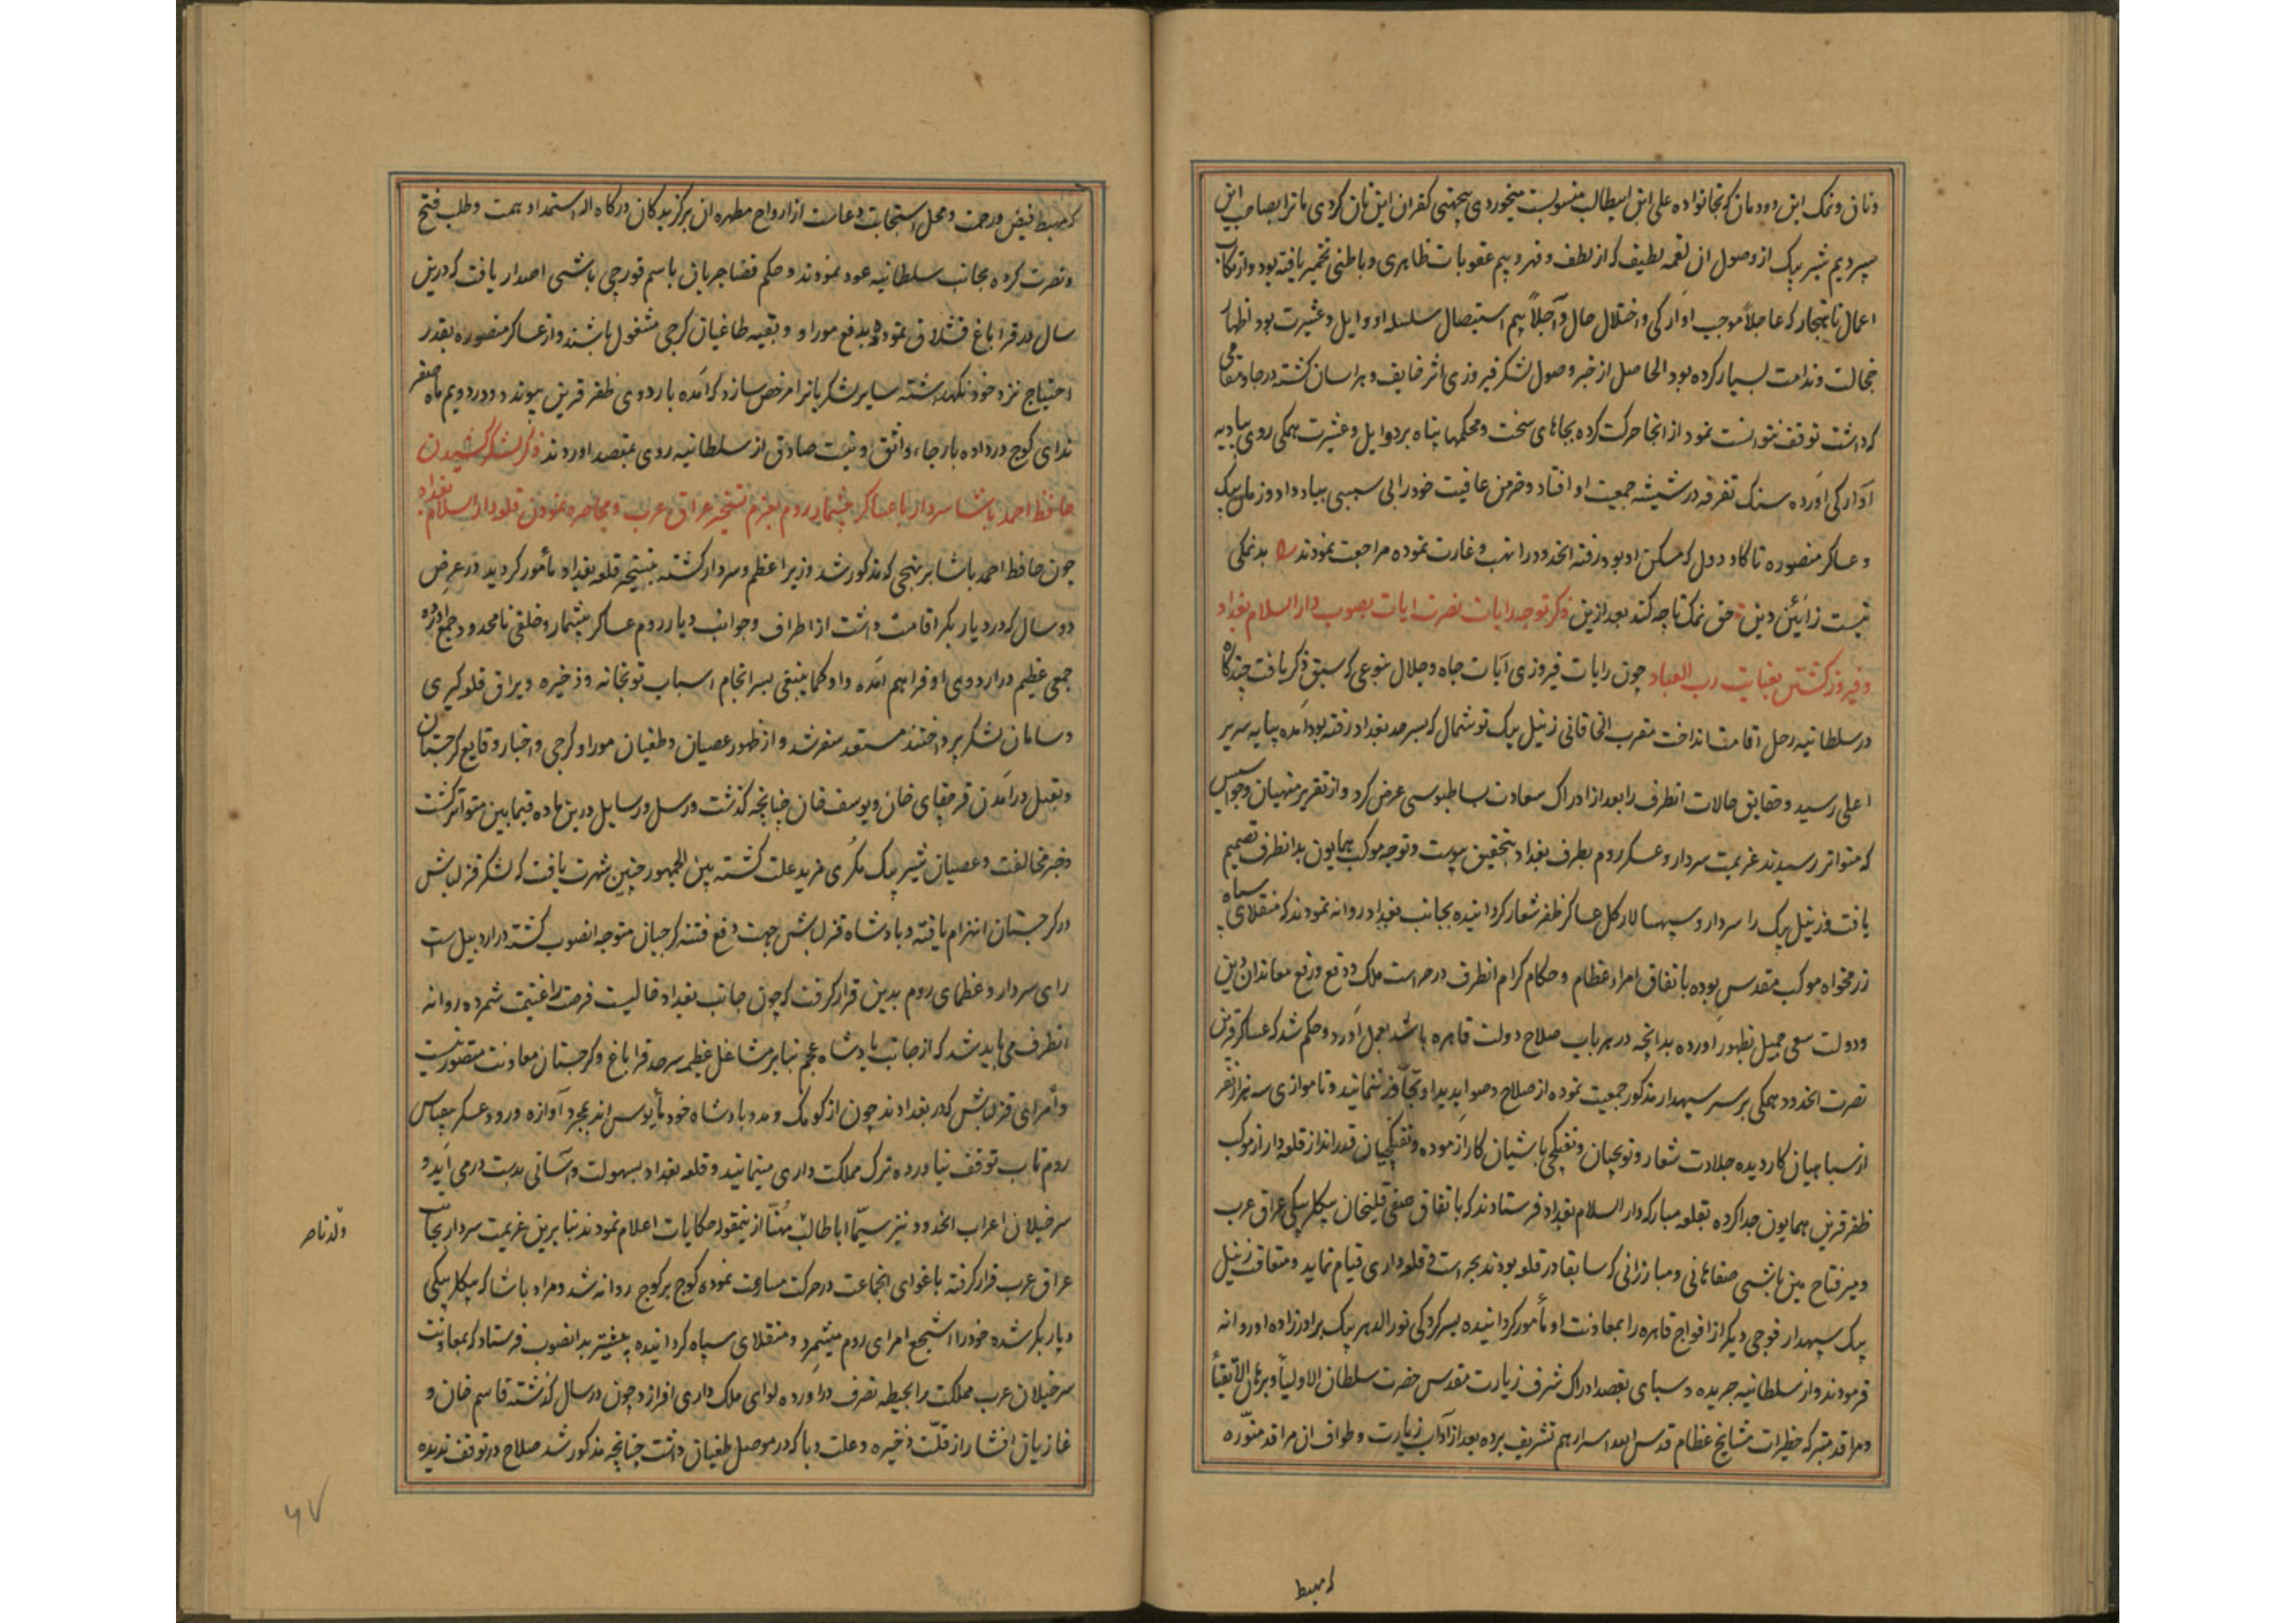 ونان و نمک این دودمان که بخانواده علی ابن ابیطالب منسوبست میخوردی بجهتی کفران این نان کردی ما ترا بصاحب این
سپردیم شیر بیک از وصول آن لقمه لطیف که از لطف و قهر و بیم عقوبات ظاهری و باطنی تخمیر یافته بود و از مکافات
اعمال ناهنجار که عاجلاً موجب آوارکی و اختلال حال و آجلاً بیم استیصال سلسله او و ایل و عشیرت بود اظهار
خجالت و ندامت بسیار کرده بود الحاصل از خبر وصول لشکر فیروزی اثر خایف و هراسان کشته در جا و مقامی
که داشت توقف نتوانست نمود از انجا حرکت کرده بجاهای سخت و محکمها پناه برد و ایل و عشیرت همکی روی ببادیه
آوارکی آورده سنک تفرقه در شیشه جمعیت او افتاد و خرمن عافیت خود را بی سببی بباد داد و زمان بیک
و عساکر منصوره تا کاودول که مسکن او بود رفته انحدود را نهب و غارت نموده مراجعت نمودند بدنمکی
نیست ز آئین دین حق نمک تا چه کند بعد ازین ذکر توجه رایات نصرت ایات بصوب دار السلام بغداد
و فیروز کشتن بعنایت رب العباد چون رایات فیروزی آیات جاه و جلال بنوعی که سبق ذکر یافت چندکاه
در سلطانیه رحل اقامت انداخت مقرب الخاقانی زینل بیک توشمال که بسرحد بغداد رفته بود آمده بپایه سریر
اعلی رسید و حقایق حالات انطرف را بعد از ادراک سعادت بساطبوسی عرض کرد و از تقریر منهیان و جواسیس
که متواتر رسیدند عزیمت سردار و عسکر روم بطرف بغداد بتحقیق پیوست و توجه موکب همایون بدانطرف تصمیم
یافت و زینل بیک را سردار و سپهسالار کل عساکر ظفر شعار کردانیده بجانب بغداد روانه نمودند که منقلای سپاه
رزمخواه موکب مقدس بوده باتفاق امراء عظام و حکام کرام انطرف در حراست ملک و دفع و رفع معاندان دین
و دولت سعی جمیل بظهور آورده بدانچه در هر باب صلاح دولت قاهره باشد بعمل آورد و حکم شد که عساکر قرین
نصرت انحدود همکی بر سر سپهدار مذکور جمعیت نموده از صلاح و صوابدید او تجاوز ننمایند و تا موازی سه هزار نفر
از سپاهیان کاردیده جلادت شعار و توبچیان و تفنکچی باشیان کار آزموده و تفنکچیان قدرانداز قلعه دار از موکب
ظفر قرین همایون جدا کرده بقلعه مبارکه دار السلام بغداد فرستادند که باتفاق صفی قلیخان بیکلربیکی عراق عرب
و میر فتاح مین باشی صفاهانی و مبارزانی که سابقا در قلعه بودند بحراست و قلعه داری قیام نماید و متعاقب زینل
بیک سپهدار فوجی دیکر از افواج قاهره را بمعاونت او مأمور کردانیده بسرکردکی نور الدهر بیک برادرزاده او روانه
فرمودند و از سلطانیه جریده و سبای بقصد ادراک شرف زیارت مقدس حضرت سلطان الاولیأ و برهان الاتقیأ
و مراقد متبرکه حظرات مشایخ عظام قدس الله اسرارهم تشریف برده بعد از آداب زیارت و طواف ان مراقد منوّره
که مهبط
که مهبط فیض و رحمت و محل استجابت دعاست از ارواح مطهره ان برکزیدکان درکاه اله استمداد همت و طلب فتح
و نصرت کرده بجانب سلطانیه عود نمودند و حکم قضا جریان باسم قورچی باشی اصدار یافت که درین
سال در قراباغ قشلاق نموده بدفع موراو و بقیه طاغیان کرجی مشغول باشند و از عساکر منصوره بقدر
احتیاج نزد خود نکهداشته سایر لشکریانرا مرخص سازد که آمده باردوی ظفر قرین پیوندد و در دویم ماه صفر
ندای کوچ درداده بارجاء واثق و نیت صادق از سلطانیه روی بمقصد آوردند ذکر لشکر کشیدن
حافظ احمد پاشا سردار با عساکر بیشمار روم بعزم تسخیر عراق عرب و محاصره نمودن قلعه دار السلام بغداد
چون حافظ احمد پاشا بر نهجی که مذکور شد وزیر اعظم و سردار کشته بتسخیر قلعه بغداد مأمور کردید در عرض
دو سال که در دیاربکر اقامت داشت از اطراف و جوانب دیار روم عساکر بیشمار و خلقی نامحدود جمع آورده
جمعی عظیم در اردوی او فراهم آمده و او کما ینبغی بسرانجام اسباب توپخانه و ذخیره و یراق قلعه کیری
و سامان لشکر پرداختند مستعد سفر شد و از ظهور عصیان و طغیان موراو کرجی و اخبار وقایع کرجستان
و بقتل درآمدن قرچقای خان و یوسف خان چنانچه کذشت و رسل و رسایل درین ماده فیمابین متواتر کشت
و خبر مخالفت و عصیان شیر بیک مکری مزید علت کشته بین الجمهور چنین شهرت یافت که لشکر قزلباش
در کرجستان انهزام یافته و پادشاه قزلباش جهت دفع فتنه کرجیان متوجه انصوب کشته در اردبیل است
رای سردار و عظمای روم بدین قرار کرفت که چون جانب بغداد خالیست فرصت را غنیمت شمرده روانه
انطرف می باید شد که از جانب پادشاه عجم بنابر مشاغل عظیمه سرحد قراباغ و کرجستان معاونت متصور نیست
و أمرای قزلباش که در بغدادند چون از کومک و مدد پادشاه خود مأیوس اند بمجرد آوازه ورود عسکر بیقیاس
روم تاب توقف نیاورده ترک مملکت داری مینمایند و قلعه بغداد بسهولت و آسانی بدست درمی آید و
سرخیلان اعراب انحدود نیز سیّما اباطالب مُهنّا ازینمقوله حکایات اعلام نمودند بنابرین عزیمت سردار بجانب
عراق عرب قرار کرفته باغوای انجماعت در حرکت مسارعت نموده کوچ بر کوچ روانه شد و مراد پاشا که بیکلربیکی
دیاربکر شده خود را اشجع امرای روم میشمرد و منقلای سپاه کردانیده پیشتر بدانصوب فرستاد که بمعاونت
سرخیلان عرب مملکت را بحیطه تصرف درآورده لوای ملک داری افرازد و چون در سال کذشته قاسم خان و
غازیان افشار از قلّت ذخیره و علت وبا که در موصل طغیان داشت چنانچه مذکور شد صلاح در توقف ندیده
ولد ناصر
۶۷